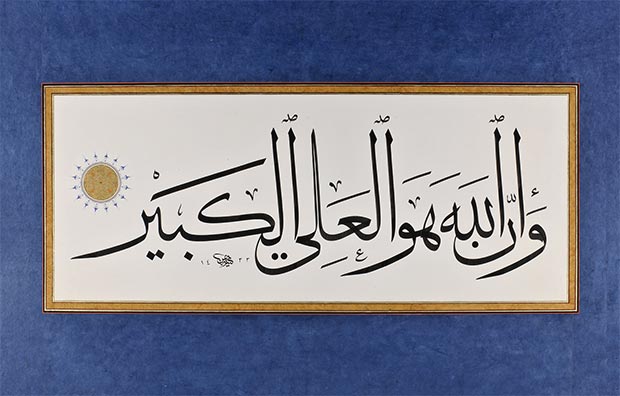 وأنّ الله هو العلي الكبير
١٤٣٣